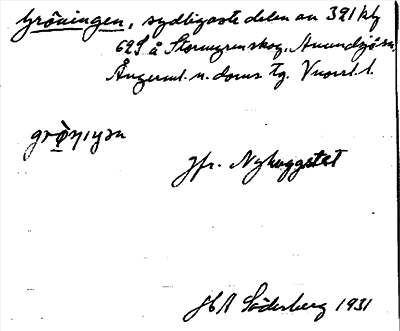 Gröningen, sydligaste delen av 321 kly
629 å Stormyrskog. Anundsjö sn.
Ångerml. n. doms tg. Västrl. l.
grø̀nıŋən
Jfr. Nyhuggstet
HA Söderberg 1931